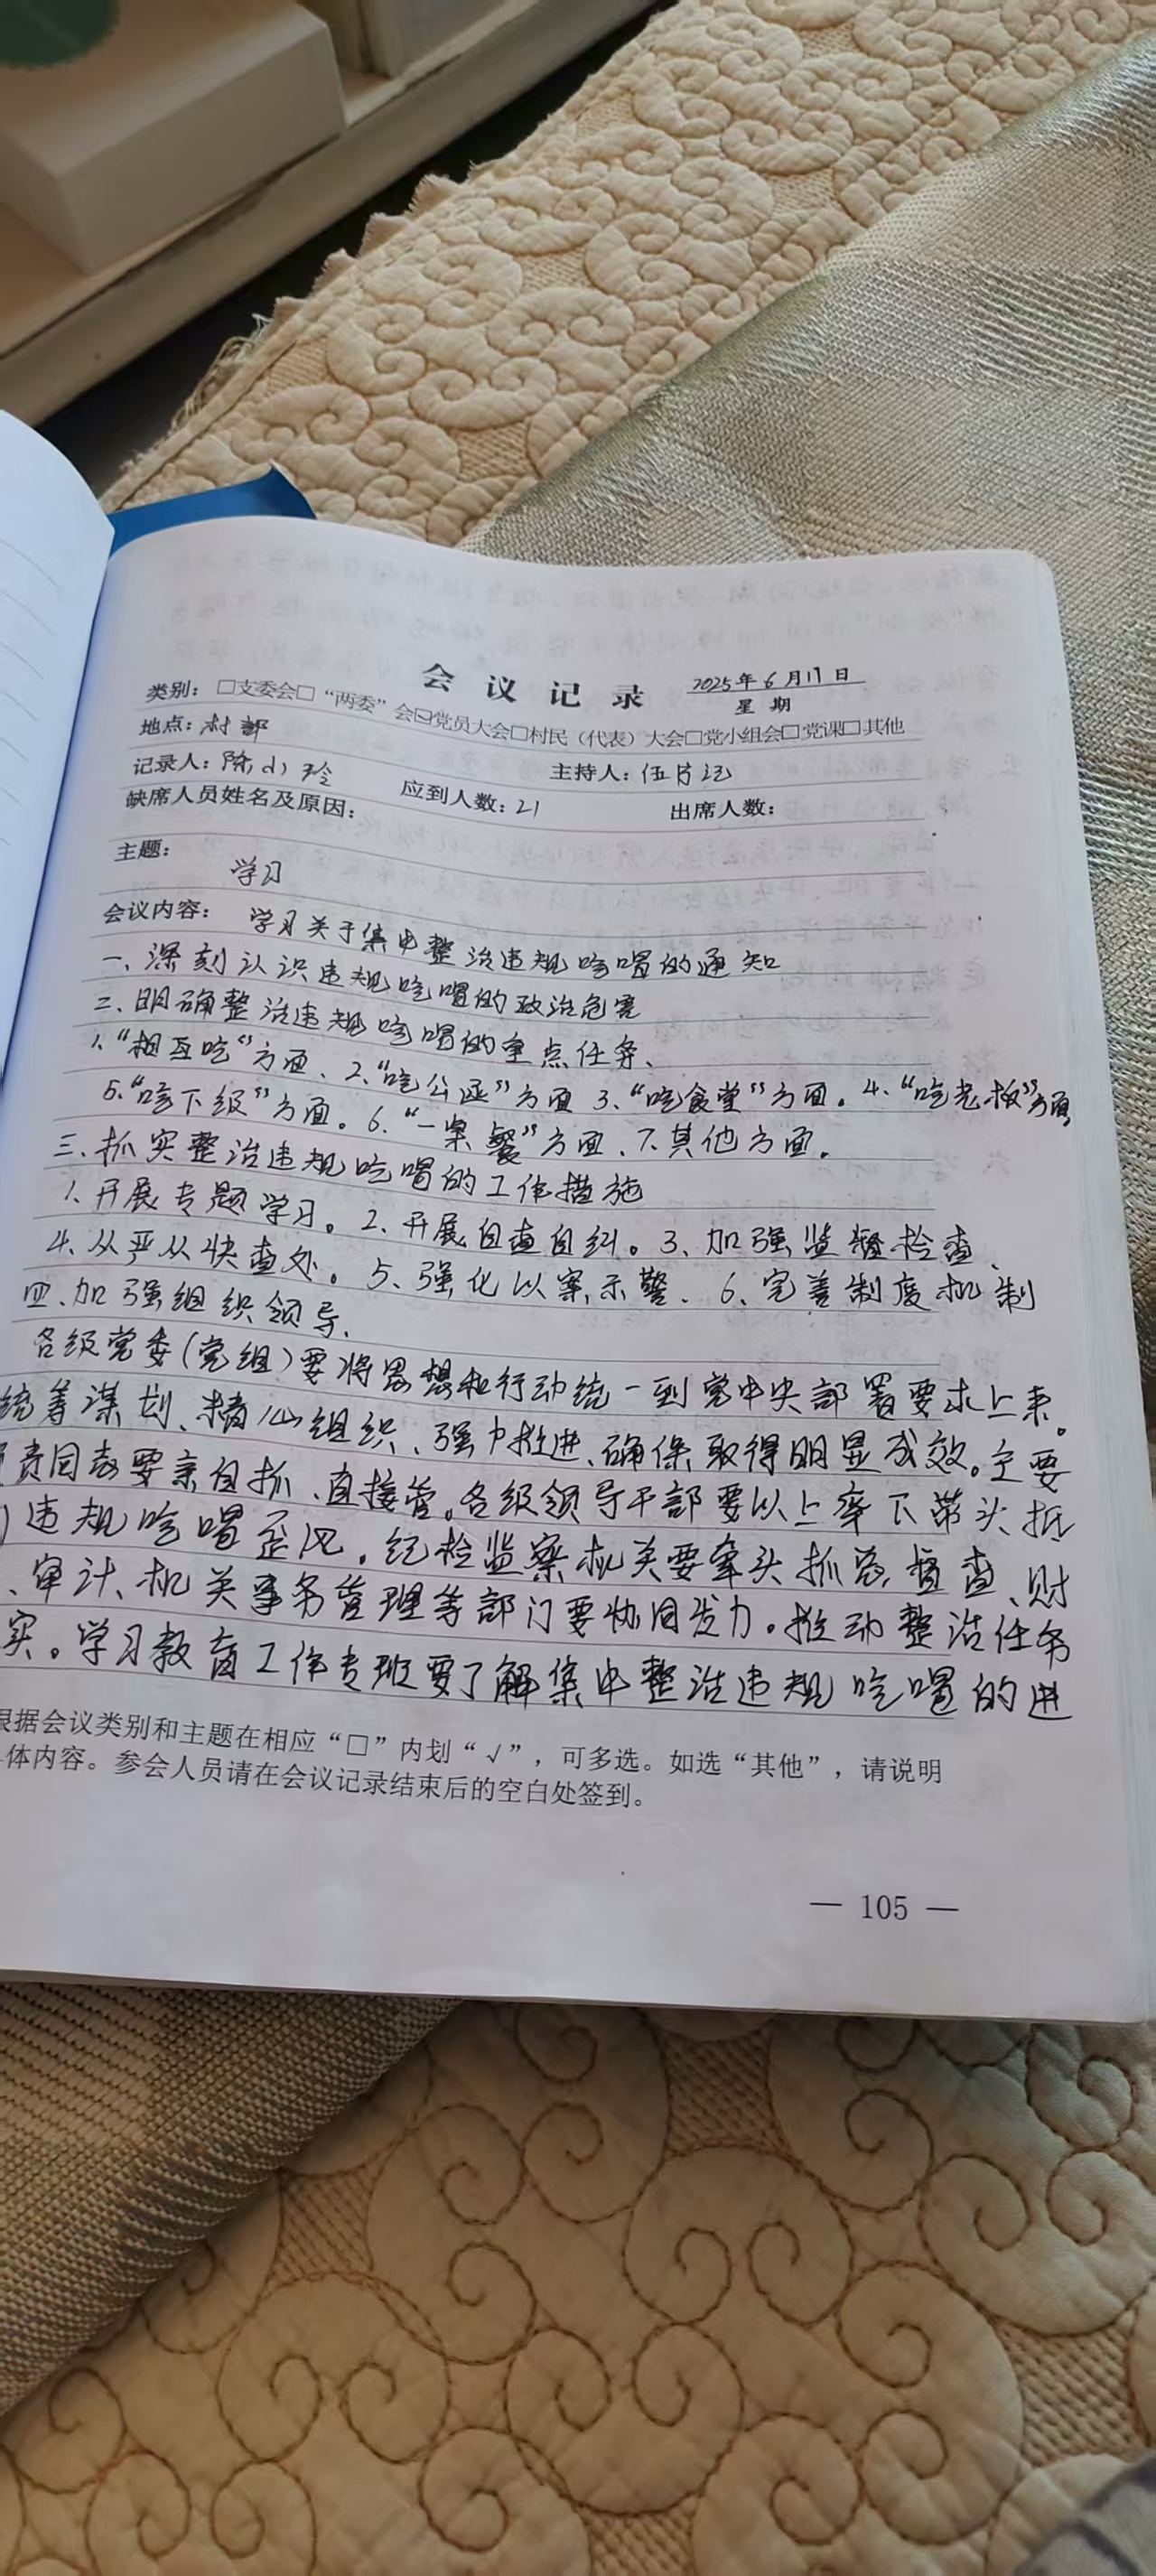 会 议 记 录
2025年6月17日
星 期
类别：□支委会□“两委”会☑党员大会□村民（代表）大会□党小组会□党课□其他
地点：村部
记录人：陈小玲 主持人：伍书记
缺席人员姓名及原因： 应到人数：21 出席人数：
主题：
学习
会议内容： 学习关于集中整治违规吃喝的通知
一、深刻认识违规吃喝的政治危害
二、明确整治违规吃喝的重点任务、
1、“相互吃”方面、2、“吃公函”方面 3、“吃食堂”方面。4、“吃老板”方面，
5、“吃下级”方面。6、“一桌餐”方面、7、其他方面。
三、抓实整治违规吃喝的工作措施
1、开展专题学习。2、开展自查自纠。3、加强监督检查、
4、从严从快查处。5、强化以案示警、6、完善制度机制
四、加强组织领导、
各级党委（党组）要将思想和行动统一到党中央部署要求上来。
统筹谋划、精心组织、强力推进、确保取得明显成效。主要
责同志要亲自抓、直接管。各级领导干部要以上率下带头抵
违规吃喝歪风。纪检监察机关要牵头抓总，督查、财
、审计、机关事务管理等部门要协同发力。推动整治任务
实。学习教育工作专班要了解集中整治违规吃喝的进
根据会议类别和主题在相应“□”内划“√”，可多选。如选“其他”，请说明
体内容。参会人员请在会议记录结束后的空白处签到。
— 105 —